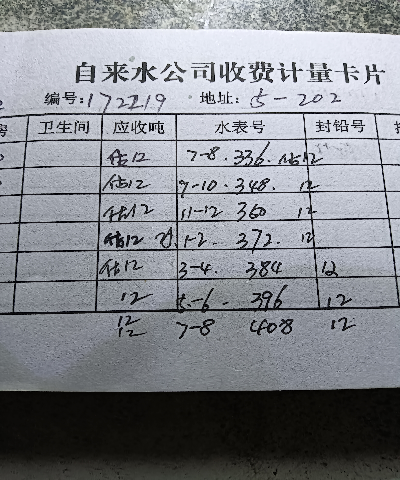 自来水公司收费计量卡片
编号:172219 地址:5-202
房 卫生间 应收吨 水表号 封铅号
估12 7-8. 336. 估12
估12 9-10. 348. 12
估12 11-12 360 12
估12 1-2. 372. 12
估12 3-4. 384 12
12 5-6. 396 12
12 7-8 408 12
12